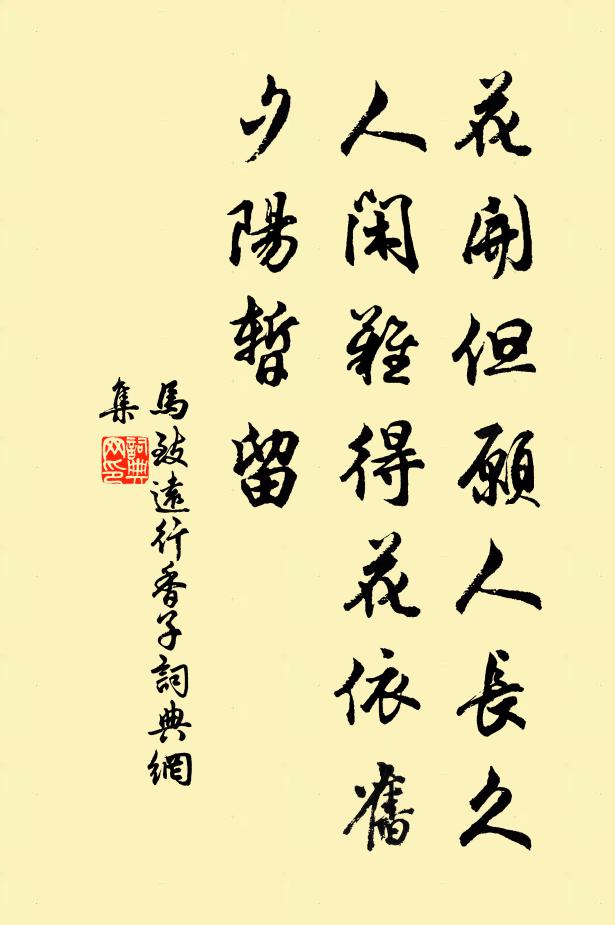 花開但願人長久
人閑難得花依舊
夕陽暫留
馬致遠行香子詞典網
集
詞典網印